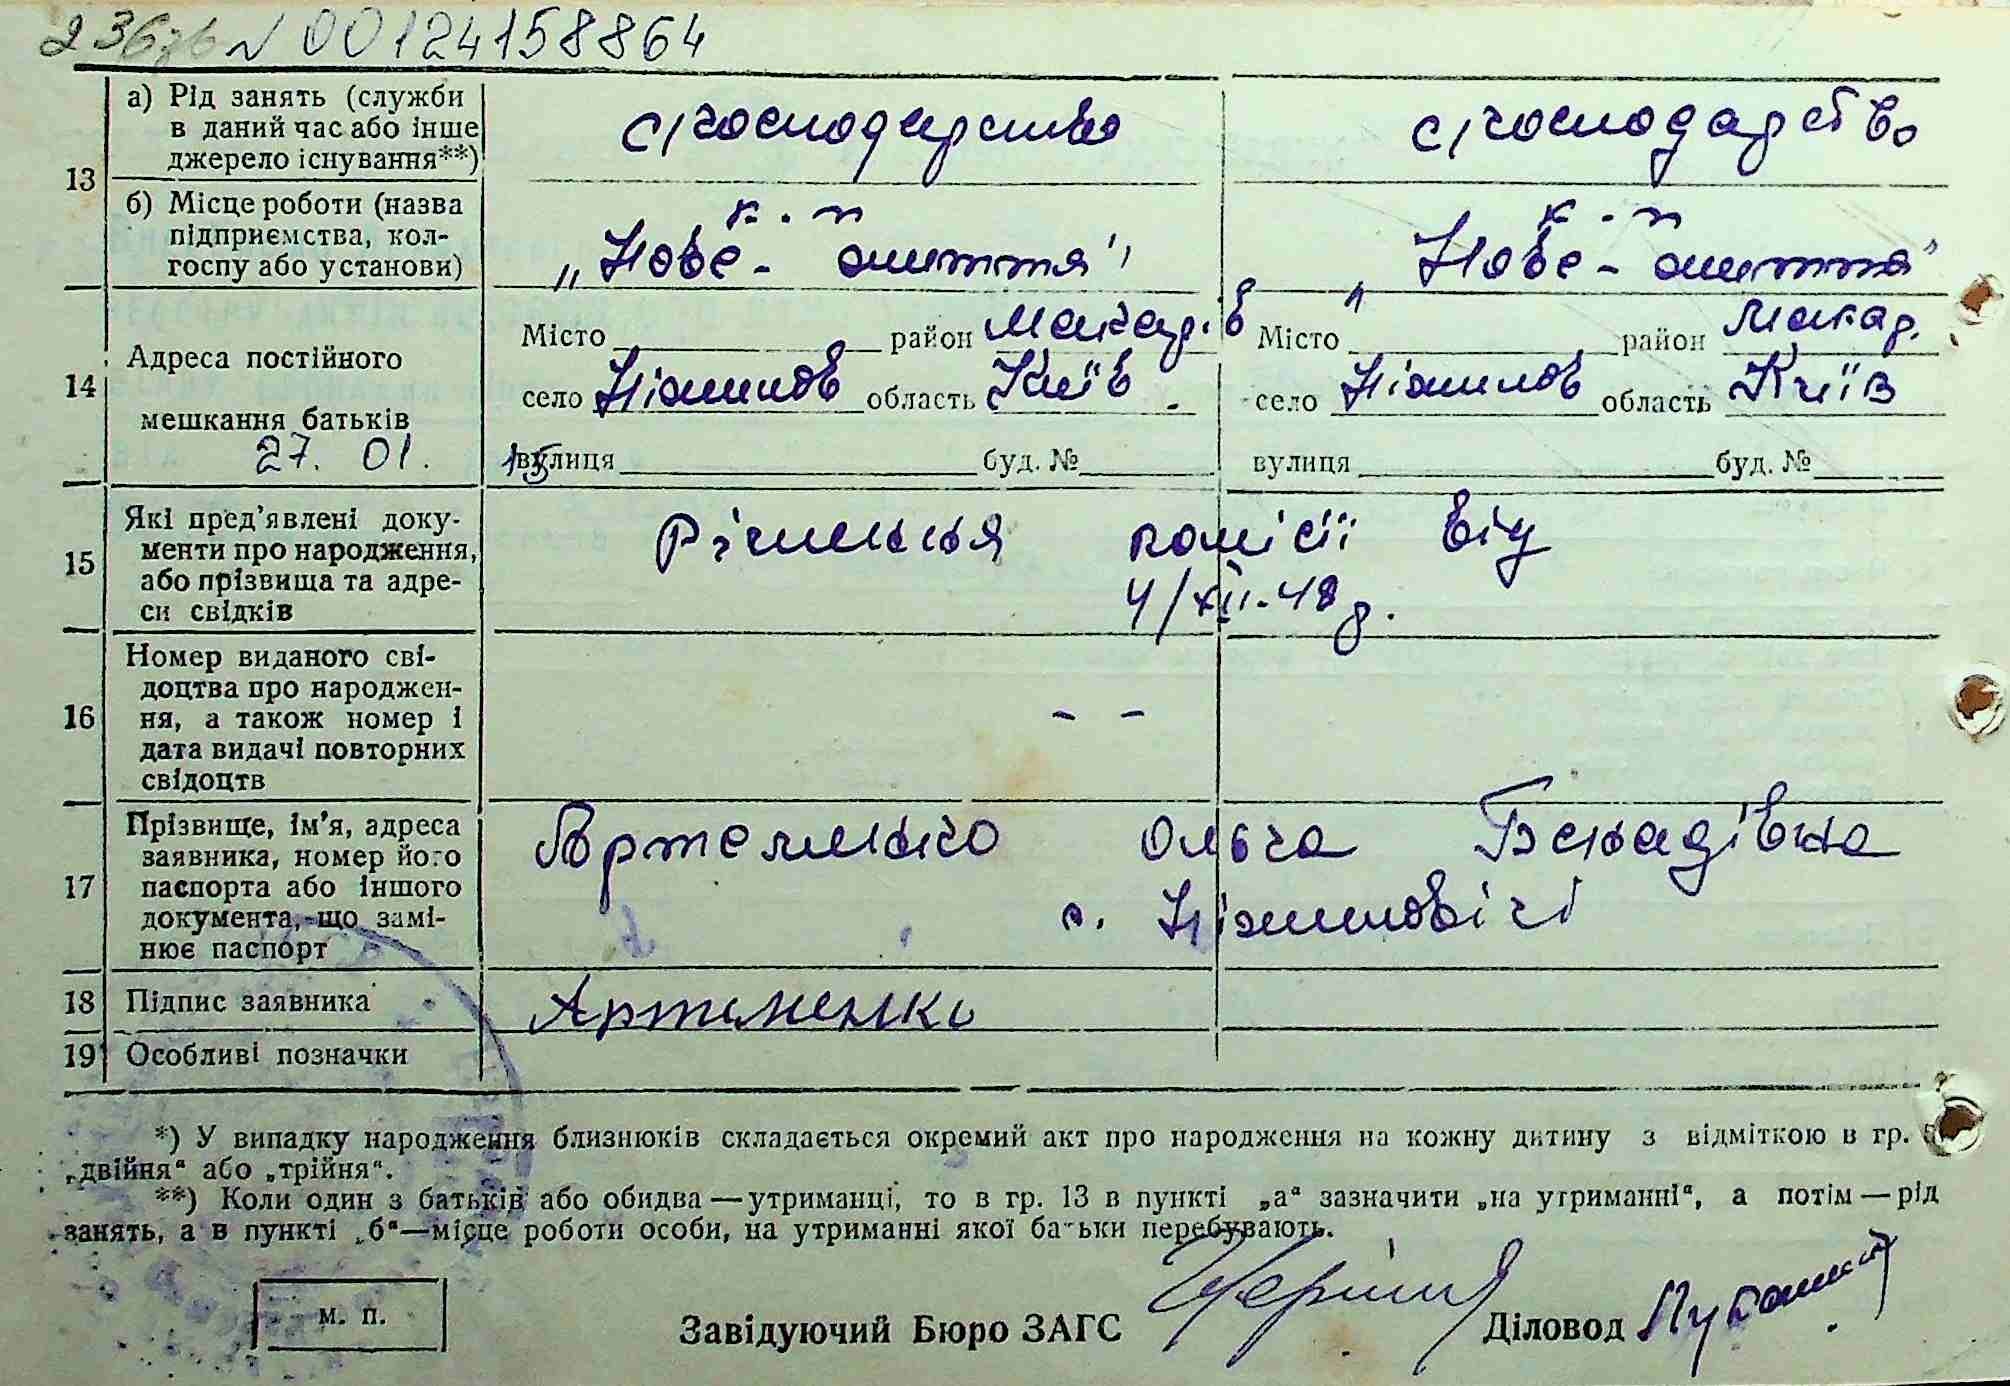 236 зв N 00124158864
13
а) Рід занять (служби
в даний час або інше
джерело існування**)
с/господарство
с/господарство
б) Місце роботи (назва
підприємства, кол-
госпу або установи)
к-п
„Нове-життя"
к-п
„Нове-життя"
14
Адреса постійного
мешкання батьків
27. 01. 15
Місто район Макарів
село Ніжилов область Київ.
вулиця буд. №
Місто район Макар.
село Ніжилов область Київ
вулиця буд. №
15
Які пред'явлені доку-
менти про народження,
або прізвища та адре-
си свідків
Рішення комісії від
4/XII-48 р.
16
Номер виданого сві-
доцтва про народжен-
ня, а також номер і
дата видачі повторних
свідоцтв
- -
17
Прізвище, ім'я, адреса
заявника, номер його
паспорта або іншого
документа, що замі-
нює паспорт
Артеменко Ольга Генадівна
с. Ніжиловічі
18
Підпис заявника
Артеменко
19
Особливі позначки
*) У випадку народження близнюків складається окремий акт про народження на кожну дитину з відміткою в гр.
„двійня" або „трійня".
**) Коли один з батьків або обидва — утриманці, то в гр. 13 в пункті „а" зазначити „на утриманні", а потім — рід
занять, а в пункті „б"—місце роботи особи, на утриманні якої батьки перебувають.
м. п.
Завідуючий Бюро ЗАГС
Діловод